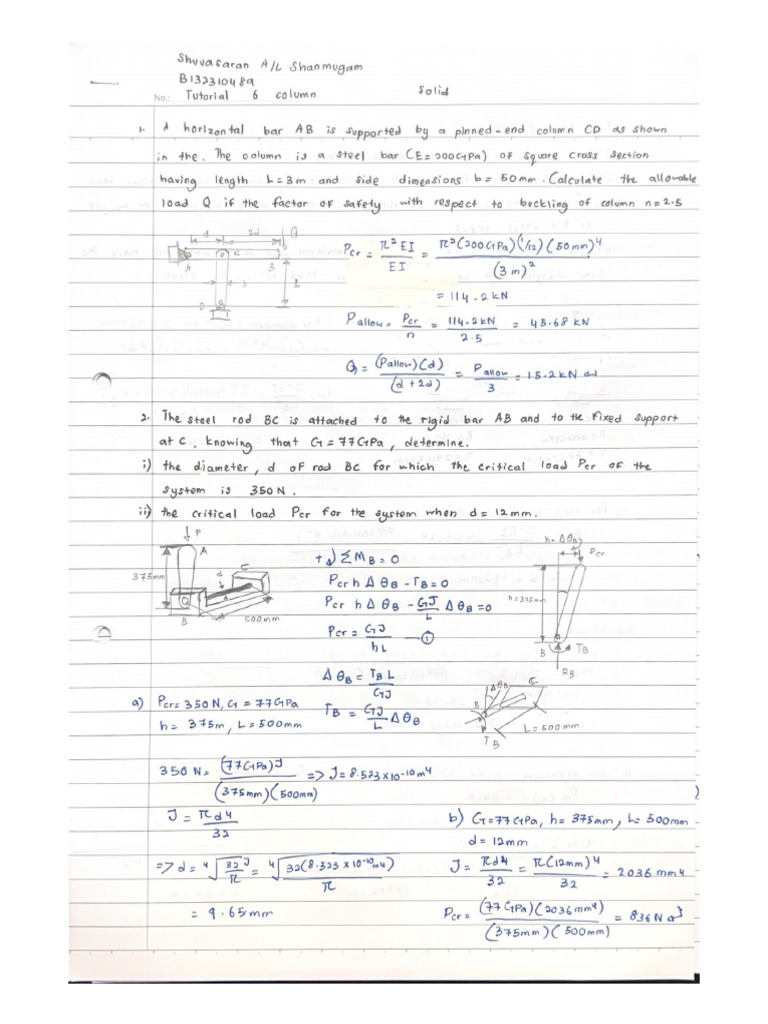 Shuvasaran A/L Shanmugam
B132310489
No.: Tutorial 6 column Solid
1. A horizontal bar AB is supported by a pinned-end column CD as shown
in the. The column is a steel bar (E=200GPa) of square cross section
having length L=3m and side dimensions b=50mm. Calculate the allowable
load Q if the factor of safety with respect to buckling of column n=2.5
d 2d Q
A C B
L
D
Pcr = π²EI/EI = π²(200GPa)(1/12)(50mm)⁴/(3m)²
= 114.2kN
Pallow = Pcr/n = 114.2kN/2.5 = 45.68 kN
Q = (Pallow)(d)/(d+2d) = Pallow/3 = 15.2kN
2. The steel rod BC is attached to the rigid bar AB and to the fixed support
at C. knowing that G=77GPa, determine.
i) the diameter, d of rod BC for which the critical load Pcr of the
system is 350N.
ii) the critical load Pcr for the system when d=12mm.
P
A
375mm
d
C
B
500mm
+ ΣMB=0
Pcr h ΔθB - TB=0
Pcr h ΔθB - GJ/L ΔθB=0
Pcr = GJ/hL ①
ΔθB = TBL/GJ
TB = GJ/L ΔθB
h ΔθB
Pcr
h=375mm
B TB
RB
ΔθB C
B
L=500mm
TB
a) Pcr=350N, G=77GPa
h= 375m, L=500mm
350N= (77GPa)J/(375mm)(500mm) => J=8.523x10-10m4
J = πd4/32
=> d = ⁴√32J/π = ⁴√32(8.523x10-10m4)/π
= 9.65mm
b) G=77GPa, h=375mm, L=500mm
d=12mm
J = πd4/32 = π(12mm)4/32 = 2036mm4
Pcr = (77GPa)(2036mm4)/(375mm)(500mm) = 836N